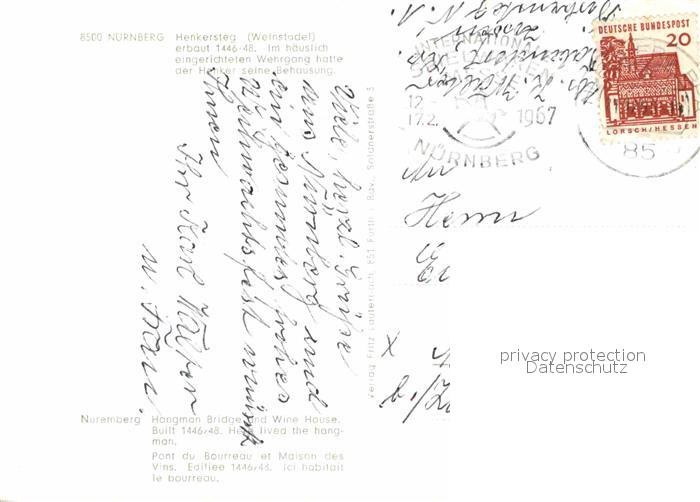 8500 NÜRNBERG Henkersteg (Weinstadel)
erbaut 1446/48. Im häuslich
eingerichteten Wehrgang hatte
der Henker seine Behausung.
Viele, herzl. Grüße
aus Nürnberg und
ein gesundes frohes
Weihnachtsfest wünscht
Ihnen
Ihr Karl
u. Frau.
Nuremberg Hangman Bridge and Wine House.
Built 1446/48. Here lived the hang-
man.
Pont du Bourreau et Maison des
Vins. Edifiée 1446/48. Ici habitait
le bourreau.
Verlag Fritz Lauterbach, 851 Fürth i. Bay., Soldnerstraße 5
INTERNATIONALE
12.-
17.2. 1967
NÜRNBERG
85
DEUTSCHE BUNDESPOST
20
LORSCH/HESSEN
An
Herrn
privacy protection
Datenschutz